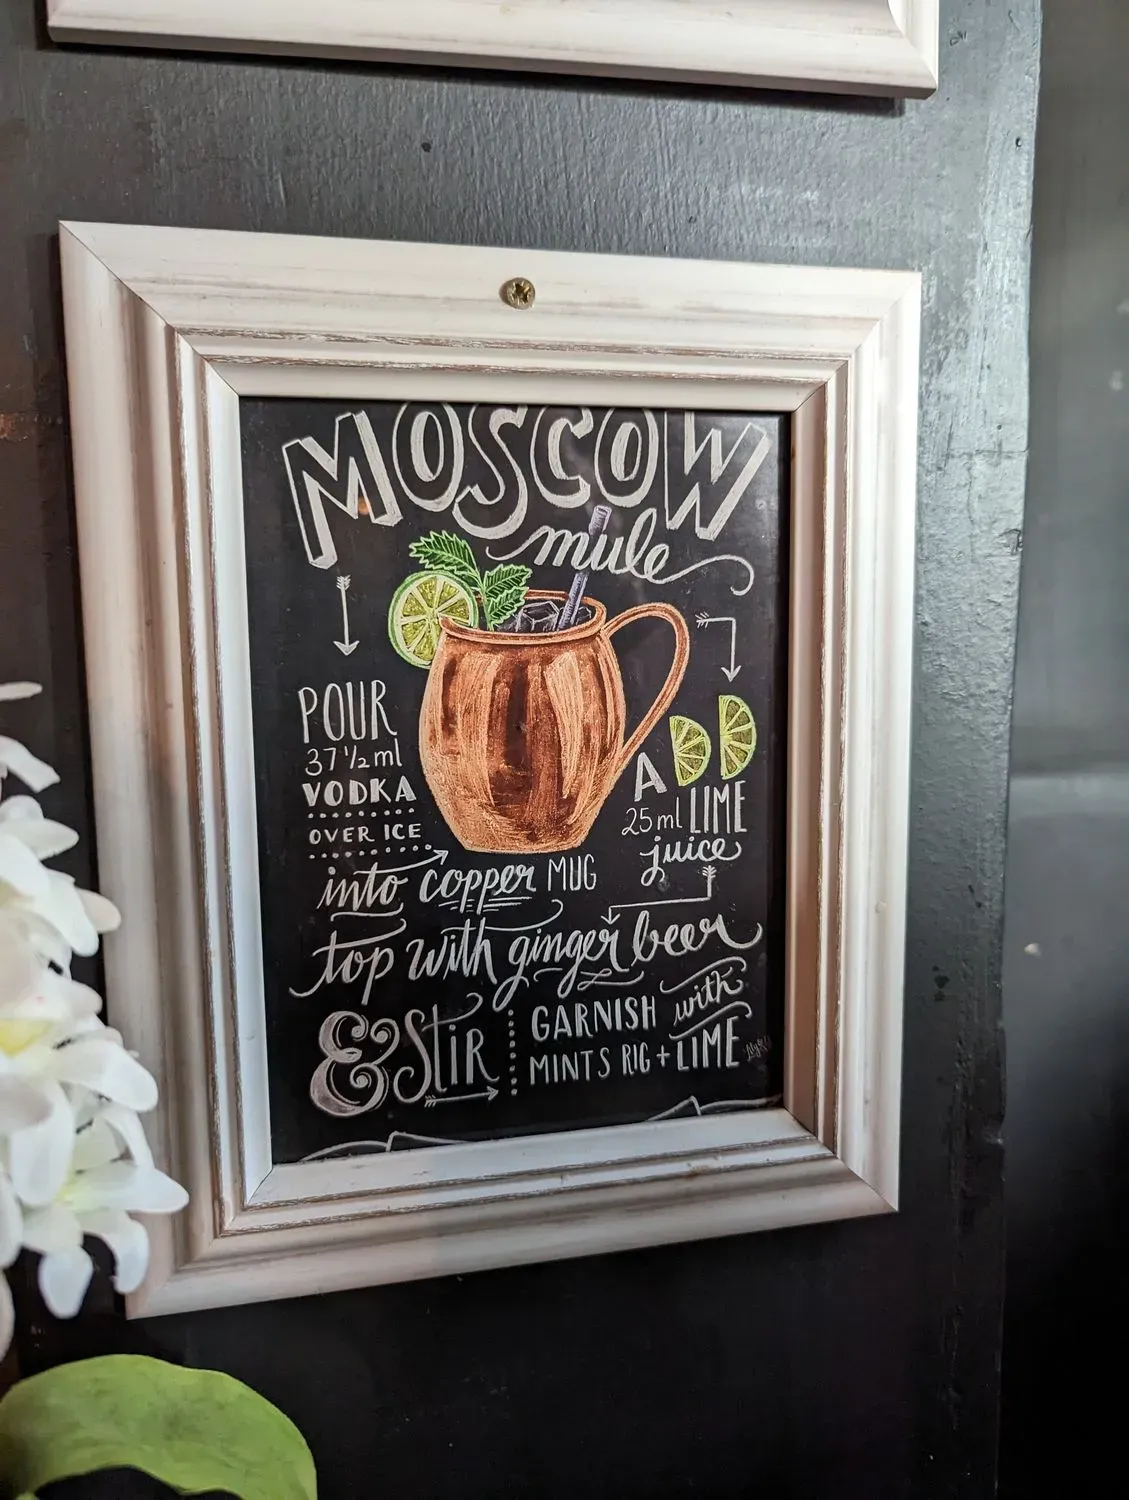 MOSCOW
mule
POUR
37 1/2 ml
VODKA
OVER ICE
into copper MUG
ADD
25 ml LIME
juice
top with ginger beer
& StiR
GARNISH with
MINTS RIG + LIME